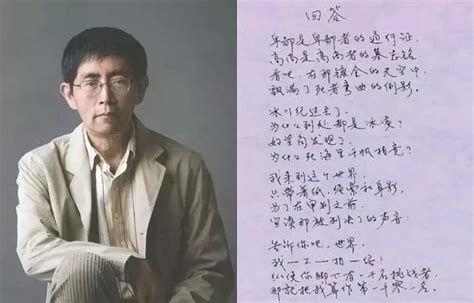 回答
卑鄙是卑鄙者的通行证，
高尚是高尚者的墓志铭
看吧，在那镀金的天空中，
飘满了死者弯曲的倒影。
冰川纪过去了，
为什么到处都是冰凌？
好望角发现了，
为什么死海里千帆相竞？
我来到这个世界，
只带着纸、绳索和身影，
为了在审判之前
宣读那被判决了的声音：
告诉你吧，世界，
我—不—相—信！
纵使你脚下有一千名挑战者，
那就把我算作第一千零一名。